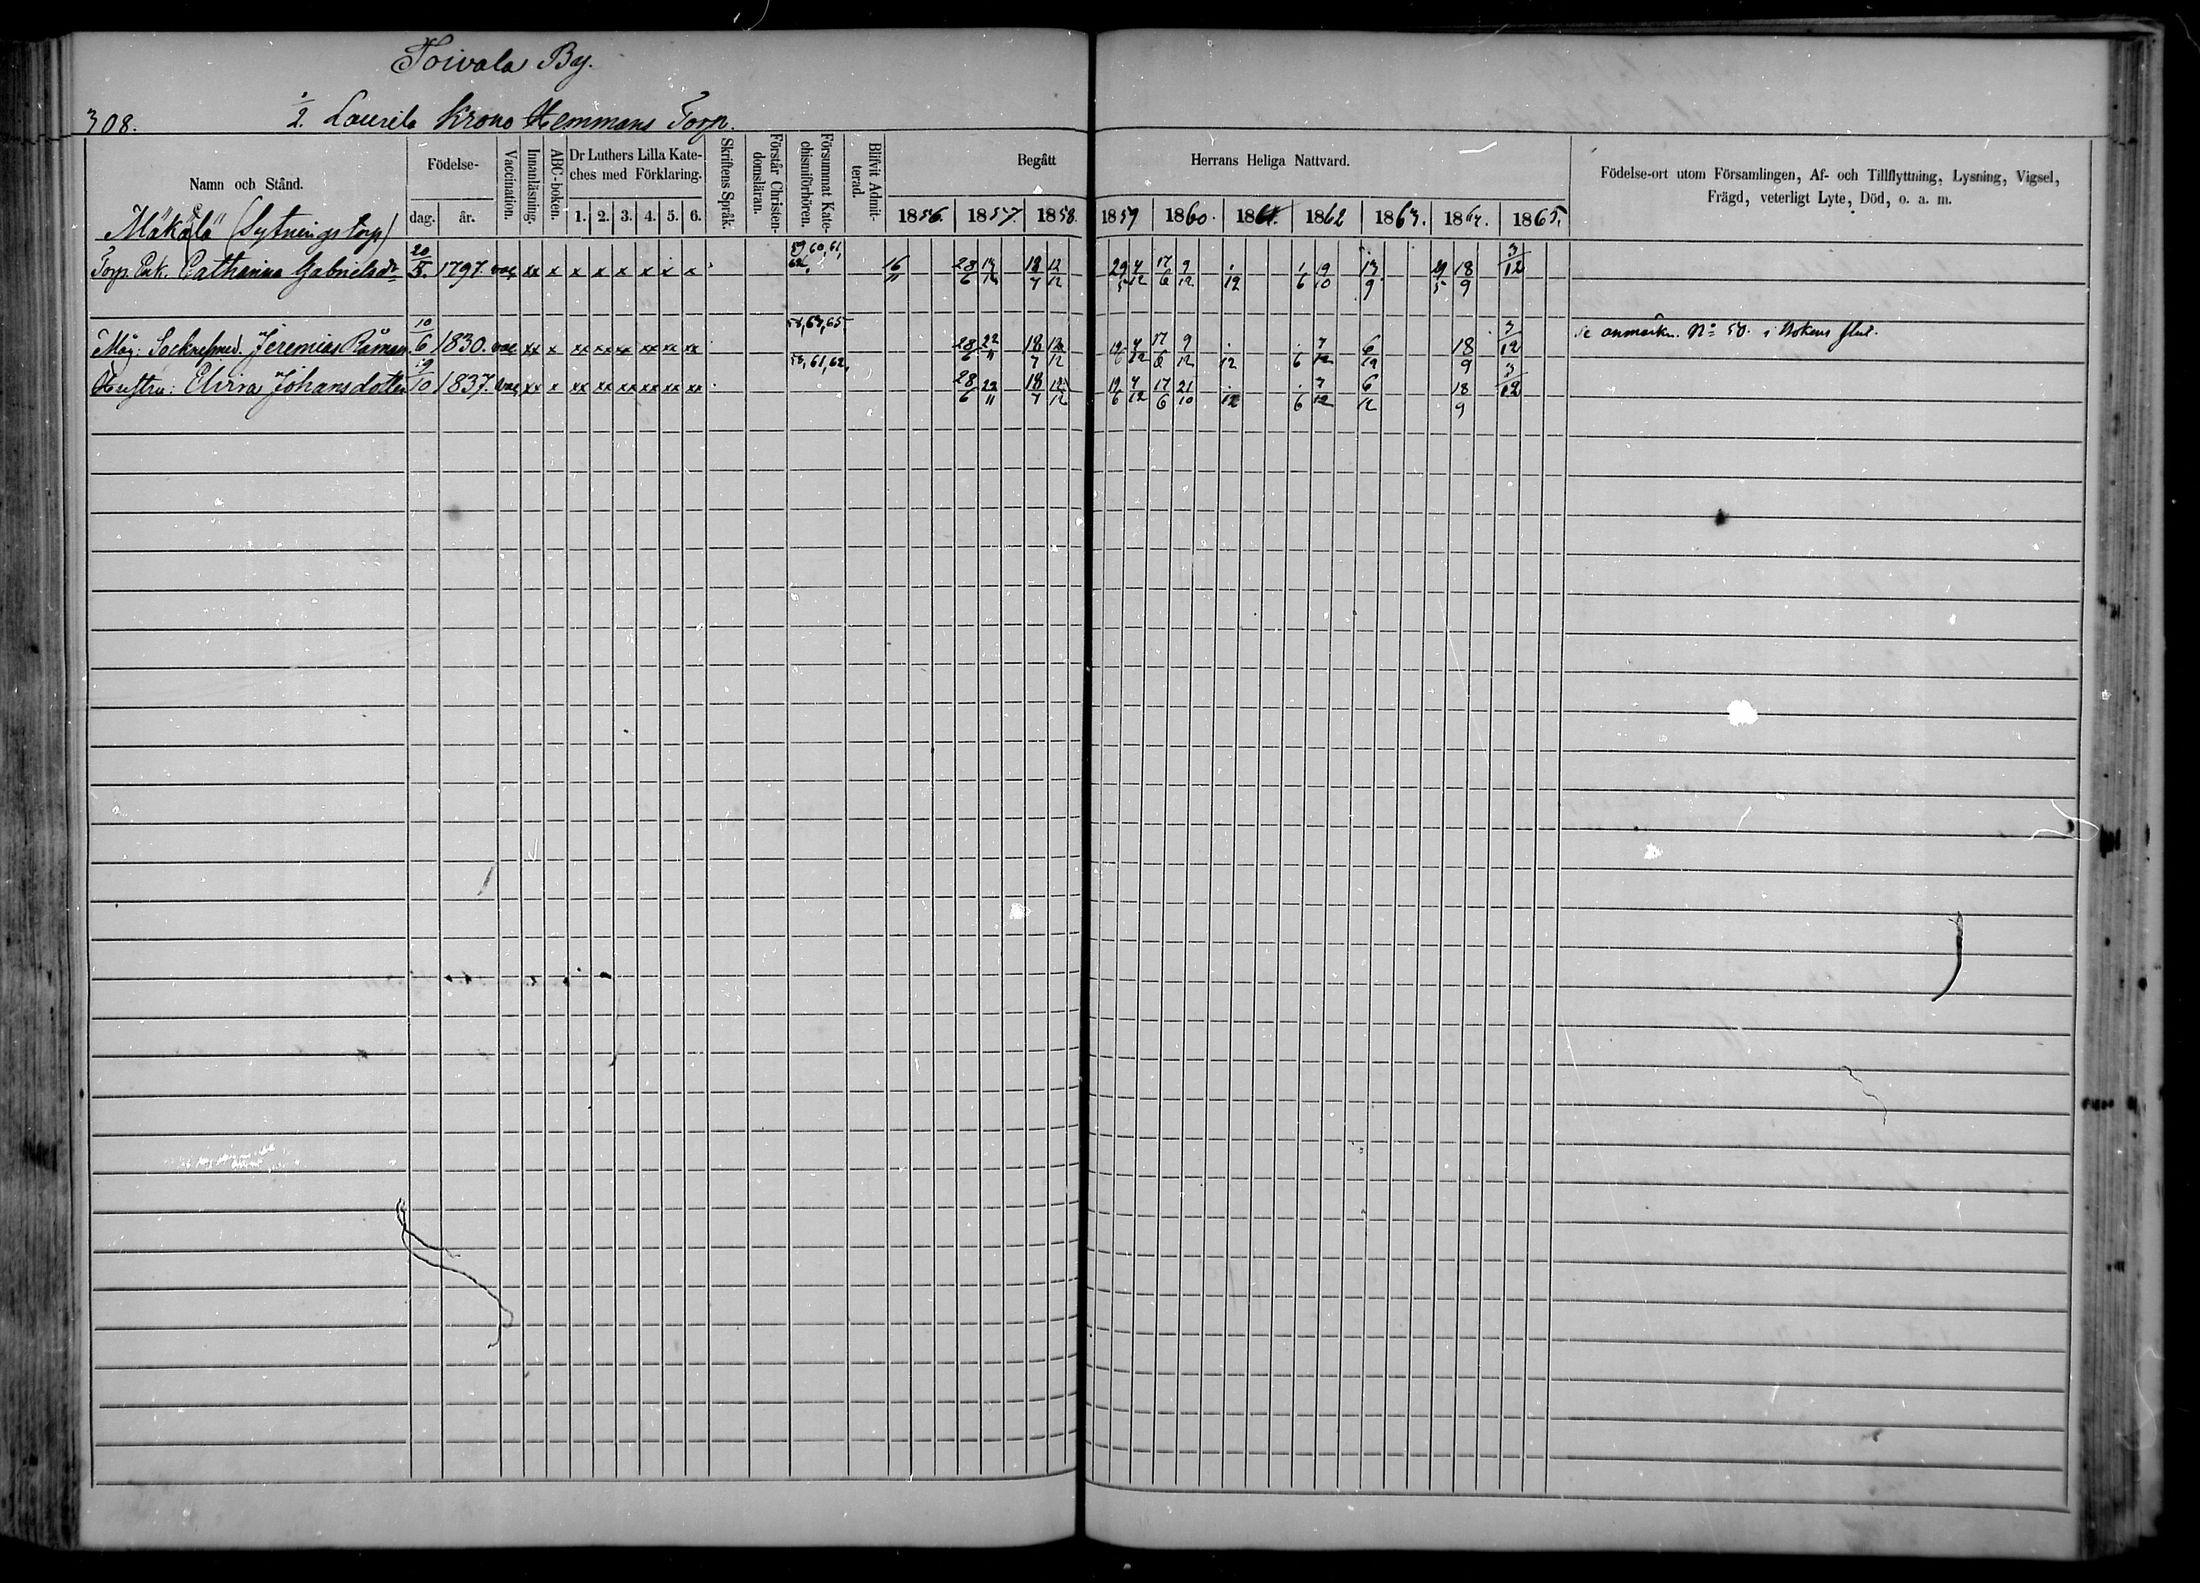 Toivala By.
308. 1/2. Laurila Krono Hemmans Torp.
Namn och Stånd. Födelse- dag. år. Vaccination. Innanläsning. ABC-boken. Dr Luthers Lilla Kateches med Förklaring. 1. 2. 3. 4. 5. 6. Skriftens Språk. Förstår Christendomsläran. Försummat Katechismiförhören. Blifvit Admitterad. Begått Herrans Heliga Nattvard. 1856. 1857. 1858. 1859 1860. 1861. 1862 1863. 1864. 1865. Födelse-ort utom Församlingen, Af- och Tillflyttning, Lysning, Vigsel, Frägd, veterligt Lyte, Död, o. a. m.
Mäkälä (Sytningstorp)
Torp. Enk. Catharina Gabrielsdr 20/5. 1797. vac xx x x x x x x x 59, 60, 61, 62, 16/11 28/6 18/7 12/12 29/5 4/12 17/6 9/12 1/12 1/6 19/10 13/9 18/9 3/12
Måg: Sockensmed. Jeremias Råman 10/6 1830. vac xx x x xx xx xx xx xx 63, 65 28/6 22/11 18/7 12/12 4/12 17/6 9/12 12 6 7/12 6/12 18/9 3/12 Se anmärkn. No 50. i Bokens slut.
Hustru: Elvira Johansdotter 19/10 1837. vac xx x xx xx xx xx xx xx 58, 61, 62, 28/6 22/11 18/7 12/12 12/6 4/12 17/6 21/10 12 6 7/12 6/12 18/9 3/12